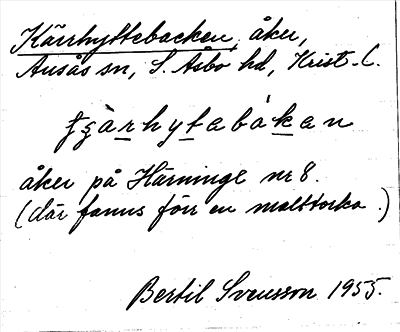 Kärrhyttebacken, åker,
Ausås sn, S. Åsbo hd, Krist. l.
åker på Härninge nr 8.
(där fanns förr en malttorka.)
Bertil Svensson 1955.